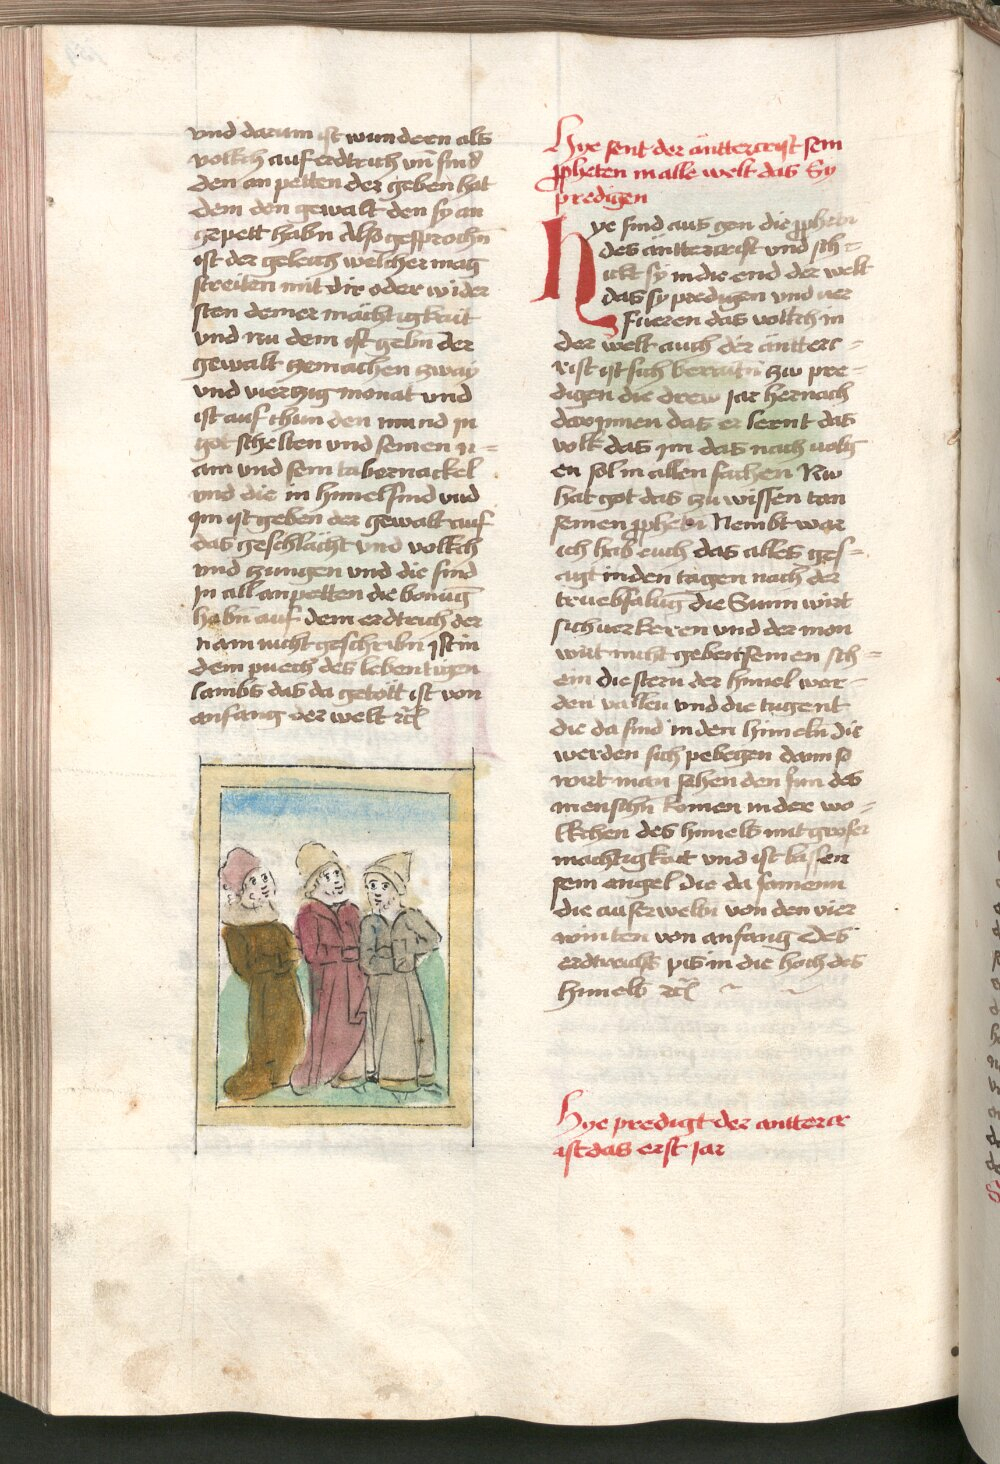 vnd darum ist wundern als
volkch auf erdtrich vn̄ sind
den an petten der geben hat
dem den gewalt den sy an
gepett habn Also gesprochn̄
ist der geleich welcher mag
streiten mit dir oder wider
sten deiner mächtigkait
vnd nu dem ist gebn̄ der
gewalt zemachen zway
vnd vierczig monat vnd
ist auf thun den mund in
got schelten vnd seinen n=
am vnd sein tabernackel
vnd die in himel sind vnd
Im ist geben der gewalt auf
das geschlächt vnd volkch
vnd zungen vnd die sind
In all anpetten die bonūg
habn̄ auf dem erdtreich der
nam nicht geschribn̄ ist in
dem puech des lebentigen
lambs das da getött ist von
anfang der welt rc̄
Hye sent der äntterc̄rist sein
ppheten in alle welt das Sy
predigen
Hye sind aus gen die ppheten
des äntterc̄rist vnd sch=
ickt sy in die end der welt
das sy predigen vnd ver
fueren das volkch in
der welt auch der äntterc=
rist ist sich beraitn̄ zw pre=
digen die drew Jar hernach
darinnen das er lernt das
volk das im das nach volg
en sol in allen sachen Nw
hat got das zu wissen tan
seinen ppheten Nembt war
ich hab euch das alles ges=
agt in den tagen nach der
truebsalūg die Sunn wirt
sich verkeren vnd der mon
wirt nicht geben seinen sch=
ein die stern der himel wer=
den vallen vnd die tugent
die da sind in den himeln die
werden sich pebegen dann so
wirt man sehen den sun des
menschn̄ komen in der wo=
lkchen des himels mit groser
mächtigkait vnd ist lassen
sein engel die da samenn
die auserweltn̄ von den vier
winten von anfang des
erdtreichs pis in die höch des
himels rc̄
Hye predigt der äntterc̄r
ist das erst Jar